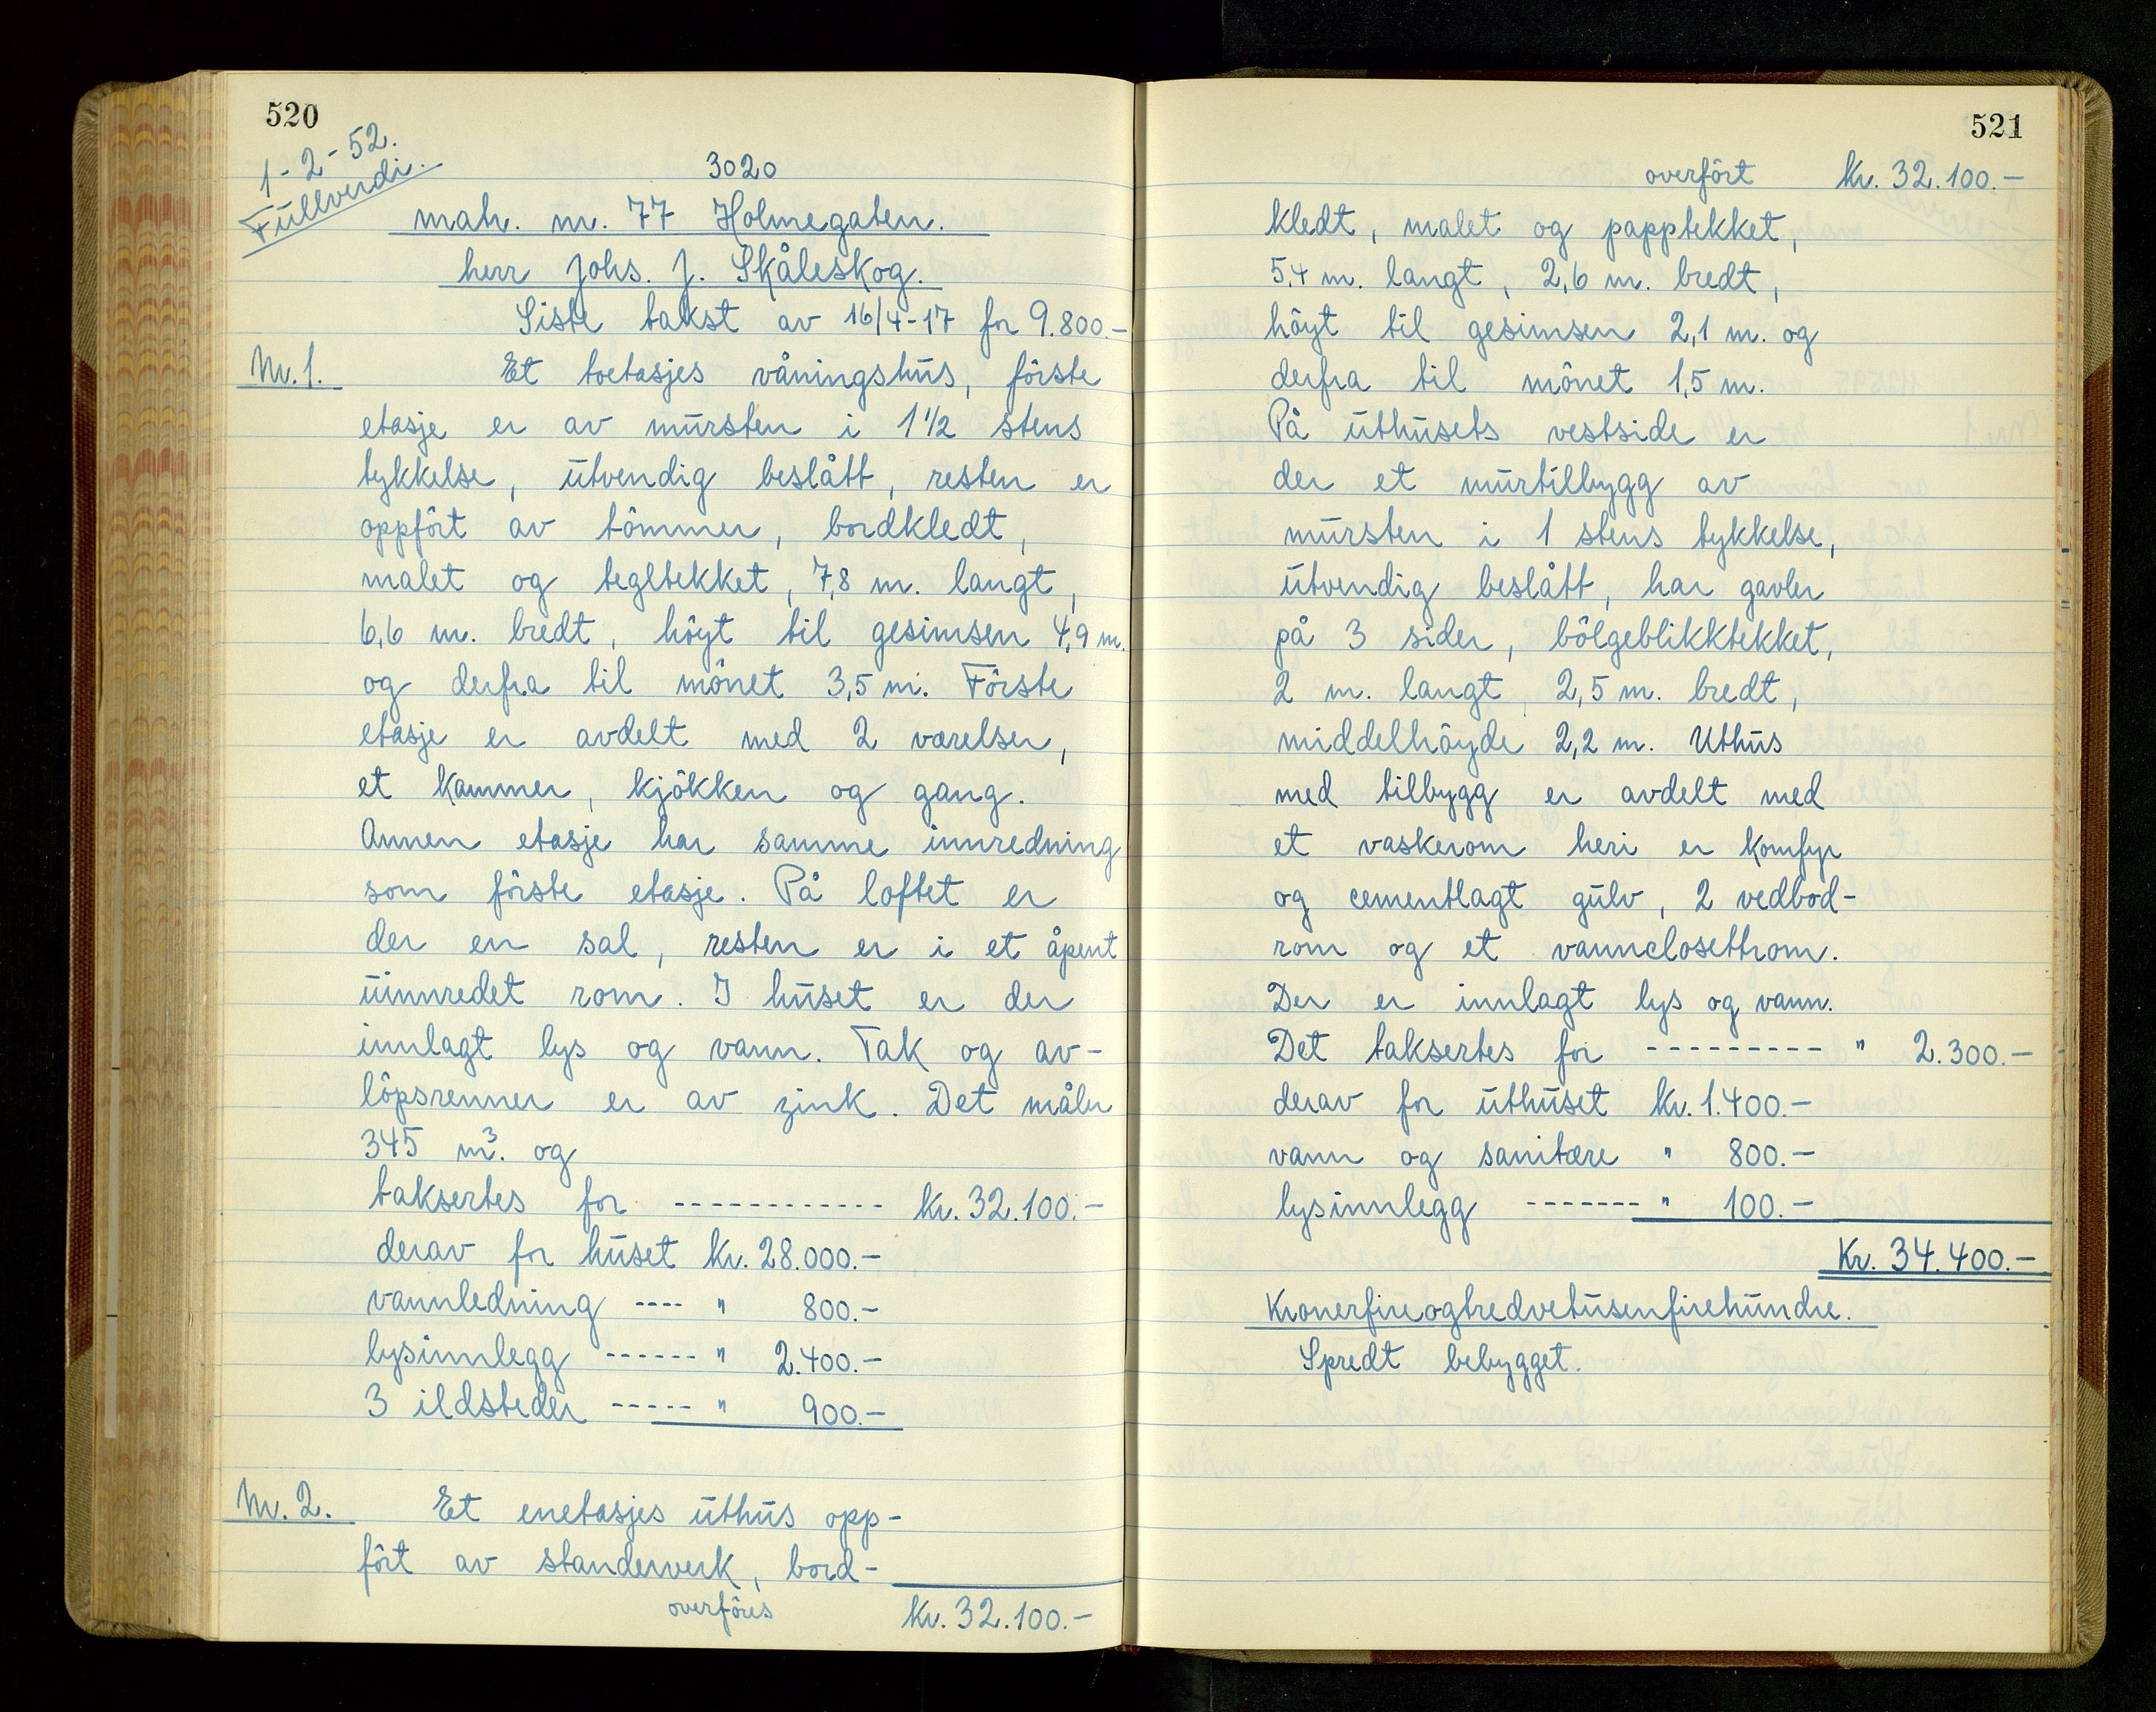 520
1-2-52.
Fullverdi.
3020
matr. nr. 77 Holmegaten.
herr Johs. J. Skåleskog.
Siste takst av 16/4-17 for 9.800.-
Nr. 1. Et toetasjes våningshus, förste
etasje er av mursten i 1 1/2 stens
tykkelse, utvendig beslått, resten er
oppfört av tömmer, bordkledt,
malet og tegltekket, 7,8 m. langt,
6,6 m. bredt, höyt til gesimsen 4,9 m.
og derfra til mönet 3,5 m. Förste
etasje er avdelt med 2 værelser,
et kammer, kjökken og gang.
Annen etasje har samme innredning
som förste etasje. På loftet er
der en sal, resten er i et åpent
uinnredet rom. I huset er der
innlagt lys og vann. Tak og av-
löpsrenner er av zink. Det måler
345 m³. og
taksertes for ------------ Kr. 32.100.-
derav for huset Kr. 28.000.-
vannledning ---- " 800.-
lysinnlegg ------ " 2.400.-
3 ildsteder ----- " 900.-
Nr. 2. Et enetasjes uthus opp-
fört av standerverk, bord-
overföres Kr. 32.100.-
521
overfört Kr. 32.100.-
kledt, malet og papptekket,
5,4 m. langt, 2,6 m. bredt,
höyt til gesimsen 2,1 m. og
derfra til mönet 1,5 m.
På uthusets vestside er
der et murtilbygg av
mursten i 1 stens tykkelse,
utvendig beslått, har gavler
på 3 sider, bölgeblikktekket,
2 m. langt, 2,5 m. bredt,
middelhöyde 2,2 m. Uthus
med tilbygg er avdelt med
et vaskerom heri er komfyr
og cementlagt gulv, 2 vedbod-
rom og et vannclosettrom.
Der er innlagt lys og vann.
Det taksertes for --------- " 2.300.-
derav for uthuset Kr. 1.400.-
vann og sanitære " 800.-
lysinnlegg ------- " 100.-
Kr. 34.400.-
Kronerfireogtredvetusenfirehundre.
Spredt bebygget.